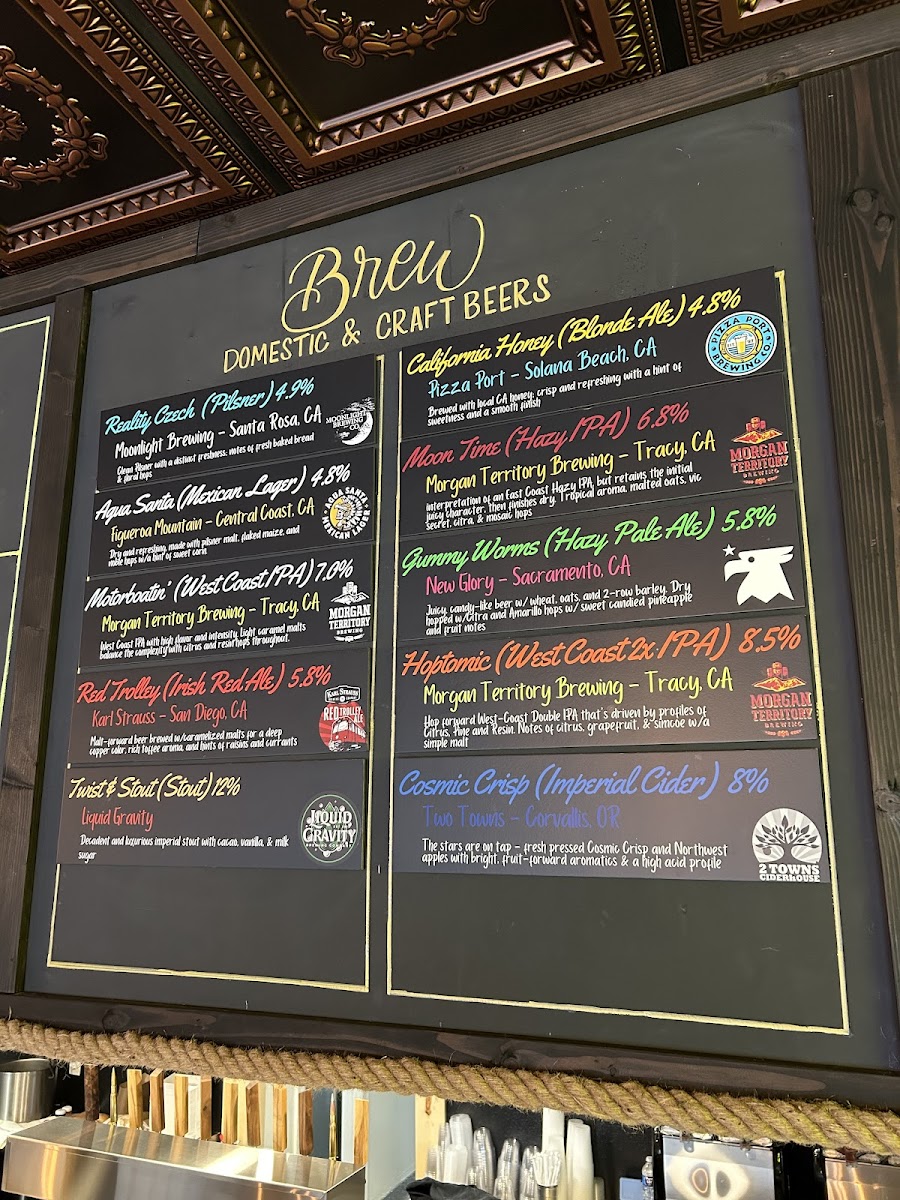 Brew
DOMESTIC & CRAFT BEERS
Reality Czech (Pilsner) 4.9%
Moonlight Brewing - Santa Rosa, CA
Clean Pilsner with a distinct freshness; notes of fresh baked bread
& floral hops
MOONLIGHT
BREWING
CO.
Agua Santa (Mexican Lager) 4.8%
Figueroa Mountain - Central Coast, CA
Dry and refreshing, made with pilsner malt, flaked maize, and
noble hops w/a hint of sweet corn
AGUA SANTA
MEXICAN LAGER
Motorboatin' (West Coast IPA) 7.0%
Morgan Territory Brewing - Tracy, CA
West Coast IPA with high flavor and intensity. Light caramel malts
balance the complexity with citrus and resin hops throughout.
MORGAN
TERRITORY
BREWING
Red Trolley (Irish Red Ale) 5.8%
Karl Strauss - San Diego, CA
Malt-forward beer brewed w/caramelized malts for a deep
copper color, rich toffee aroma, and hints of raisins and currants
KARL STRAUSS
RED TROLLEY
ALE
Twist & Stout (Stout) 12%
Liquid Gravity
Decadent and luxurious imperial stout with cacao, vanilla, & milk
sugar
LIQUID
GRAVITY
BREWING COMPANY
California Honey (Blonde Ale) 4.8%
Pizza Port - Solana Beach, CA
Brewed with local CA honey; crisp and refreshing with a hint of
sweetness and a smooth finish
PIZZA PORT
BREWING CO.
Moon Time (Hazy IPA) 6.8%
Morgan Territory Brewing - Tracy, CA
interpretation of an East Coast Hazy IPA, but retains the initial
juicy character, then finishes dry. Tropical aroma, malted oats, vic
secret, citra, & mosaic hops
MORGAN
TERRITORY
BREWING
Gummy Worms (Hazy Pale Ale) 5.8%
New Glory - Sacramento, CA
Juicy, candy-like beer w/ wheat, oats, and 2-row barley. Dry
hopped w/Citra and Amarillo hops w/ sweet candied pineapple
and fruit notes
Hoptomic (West Coast 2x IPA) 8.5%
Morgan Territory Brewing - Tracy, CA
Hop forward West-Coast Double IPA that's driven by profiles of
Citrus, Pine and Resin. Notes of citrus, grapefruit, & simcoe w/a
simple malt
MORGAN
TERRITORY
BREWING
Cosmic Crisp (Imperial Cider) 8%
Two Towns - Corvallis, OR
The stars are on tap - fresh pressed Cosmic Crisp and Northwest
apples with bright, fruit-forward aromatics & a high acid profile
2 TOWNS
CIDERHOUSE